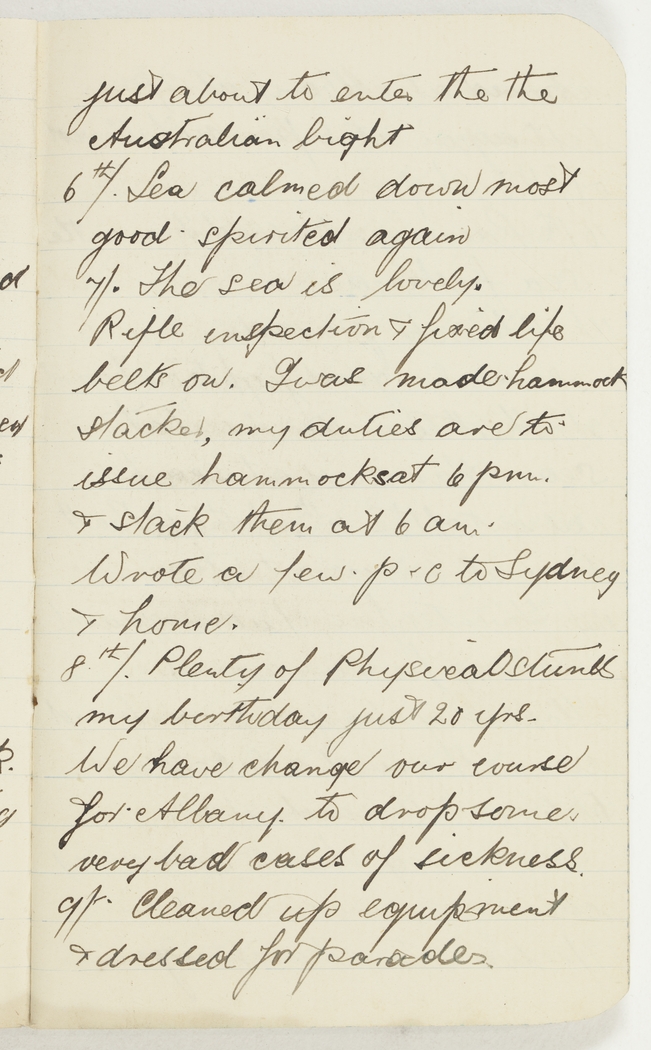 just about to enter the the
Australian bight
6th/. Sea calmed down most
good spirited again
7/. The sea is lovely.
Rifle inspection & fixed life
belts on. I was made hammock
stacker, my duties are to
issue hammocks at 6 pm.
& stack them at 6 am.
Wrote a few p.c to Sydney
& home.
8th/. Plenty of Physical stunts
my birthday just 20 yrs.
We have change our course
for Albany. to drop some
very bad cases of sickness.
9/. Cleaned up equipment
& dressed for parades.